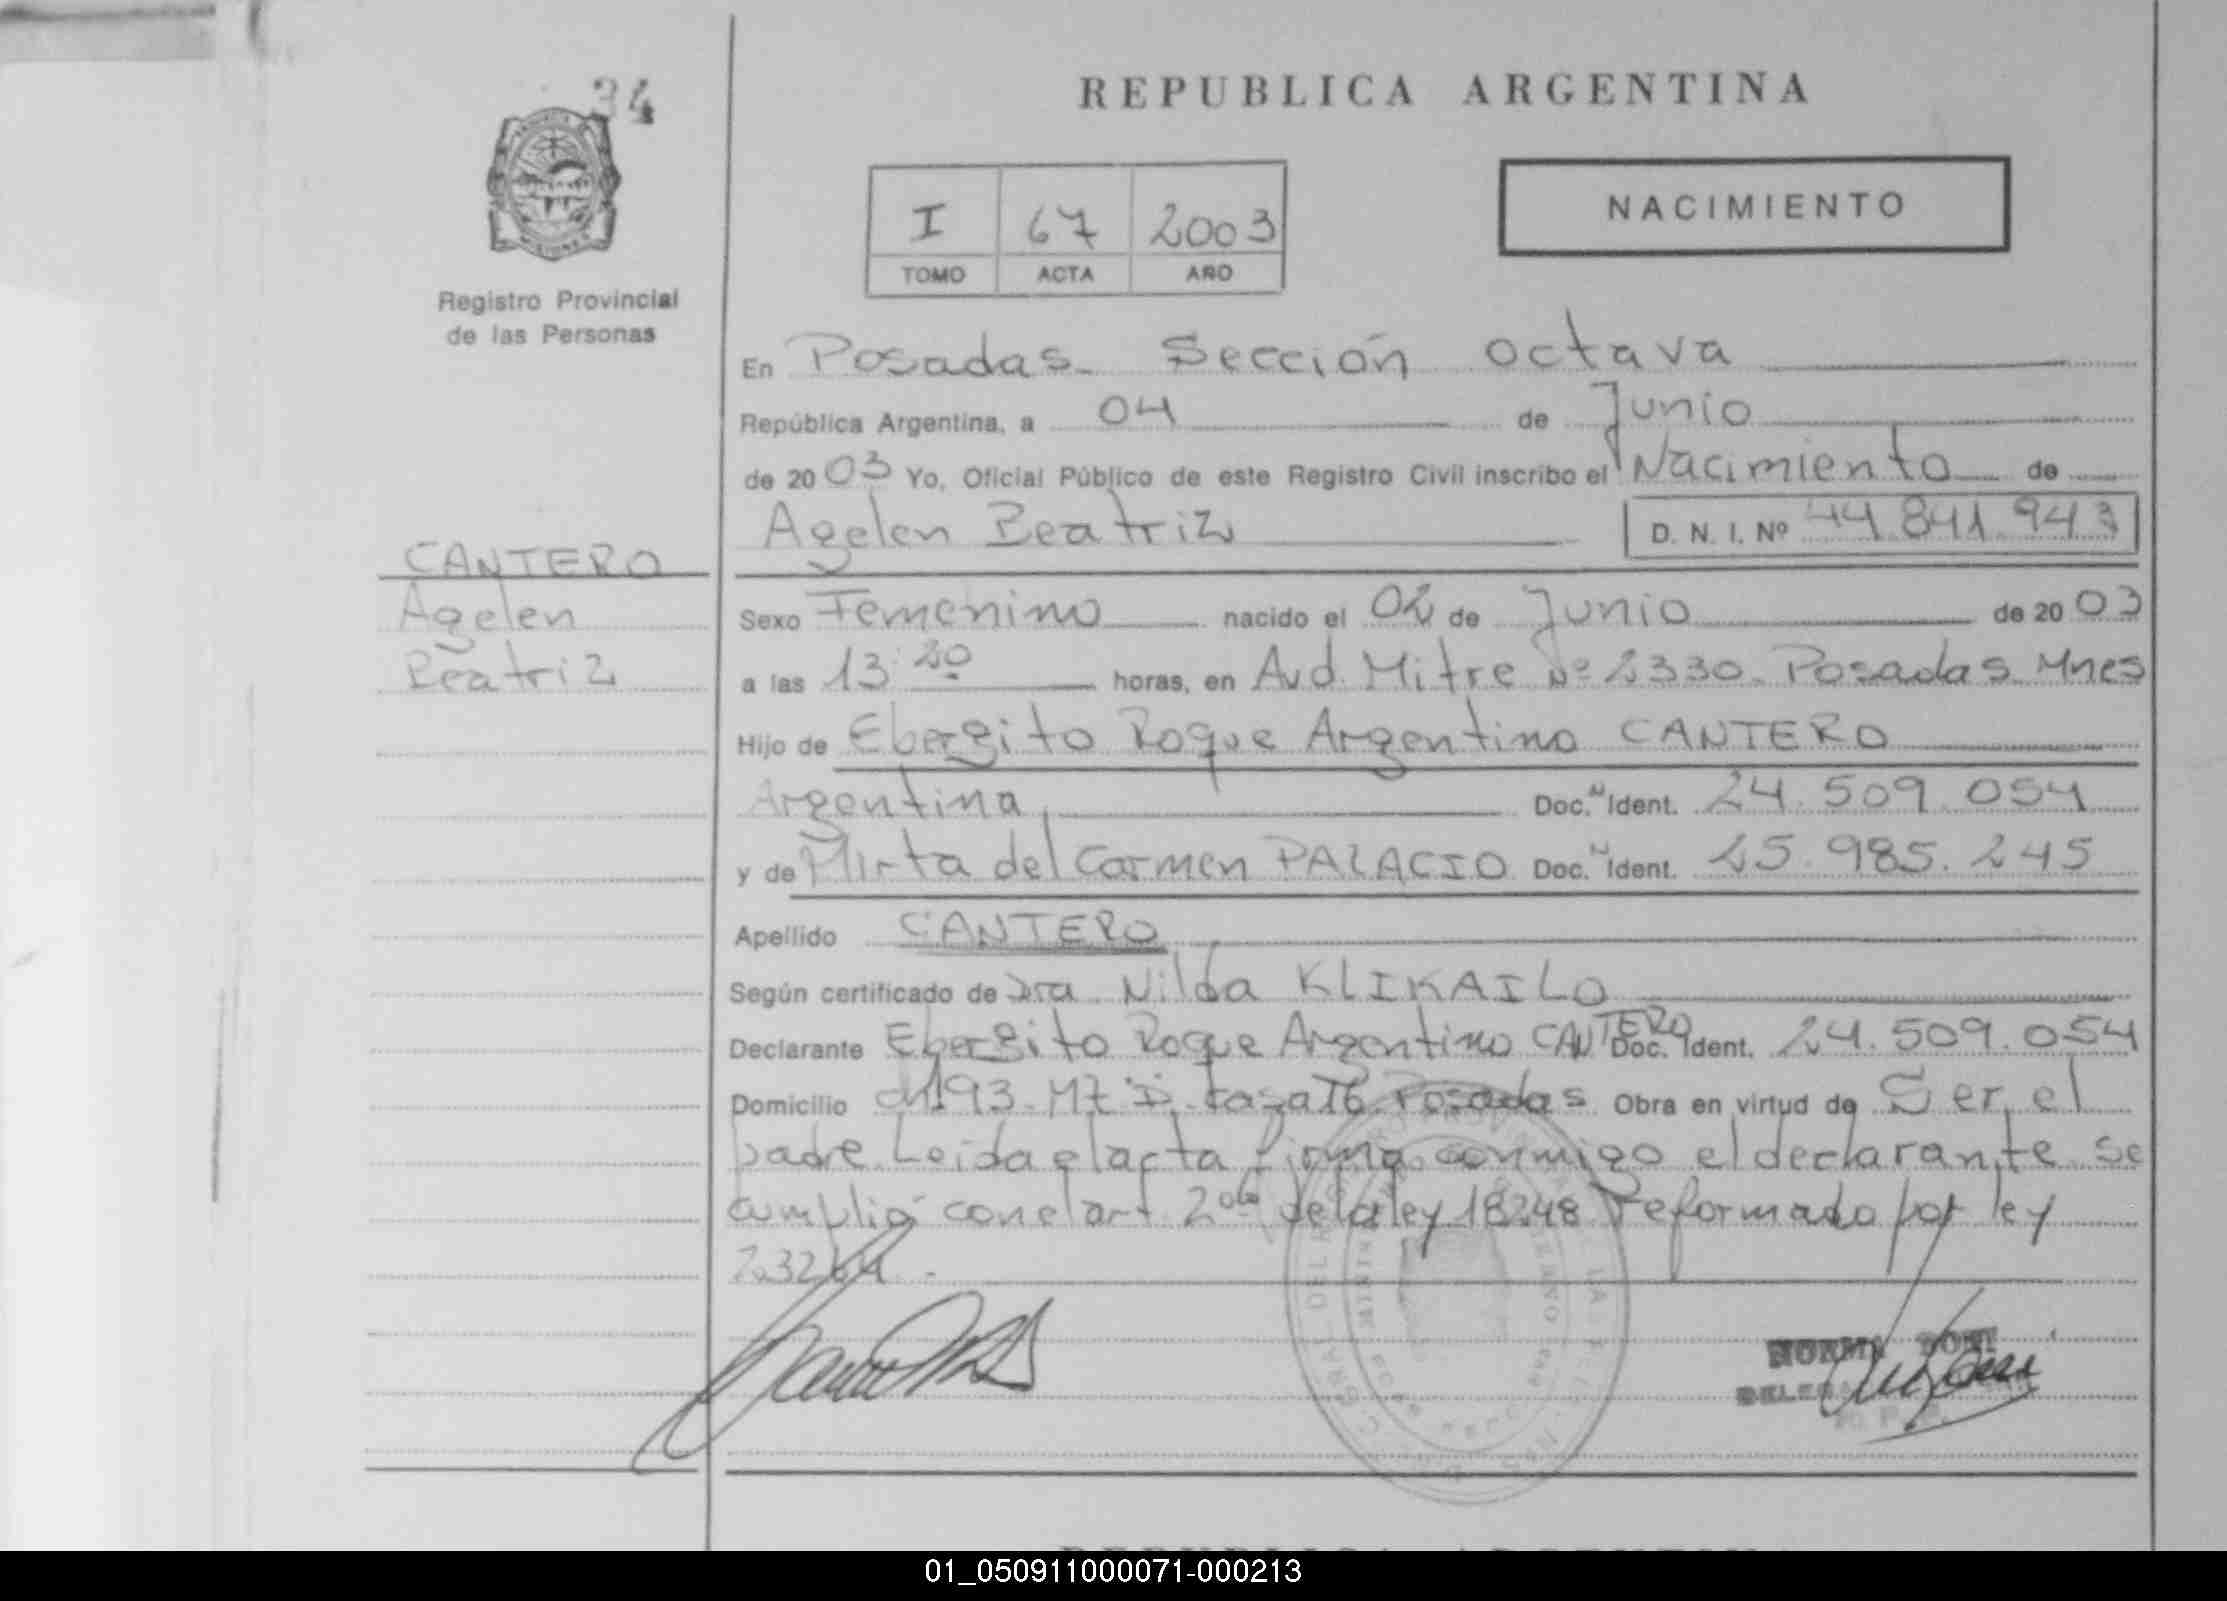 34
REPUBLICA ARGENTINA
NACIMIENTO
I 67 2003
TOMO ACTA AÑO
Registro Provincial
de las Personas
En Posadas - Sección octava
República Argentina, a 04 de Junio
de 2003 Yo, Oficial Público de este Registro Civil inscribo el Nacimiento de
Agelen Beatriz D. N. I. Nº 44.841.943
CANTERO
Agelen
Beatriz
Sexo Femenino nacido el 02 de Junio de 2003
a las 13:20 horas, en Avd. Mitre Nº 2330 - Posadas Mnes
Hijo de Ebergito Roque Argentino CANTERO
Argentina Doc. N Ident. 24.509.054
y de Mirta del Carmen PALACIO Doc. N Ident. 25.985.245
Apellido CANTERO
Según certificado de Dra Nilda KLIKAILO
Declarante Ebergito Roque Argentino CANTERO Doc. Ident. 24.509.054
Domicilio ch193 - Mz D - casa 16 Posadas Obra en virtud de Ser el
padre. Leida el acta firma conmigo el declarante se
cumplió con el art 2do de la ley 18248 reformado por ley
23264 -
NORMA
01_050911000071-000213